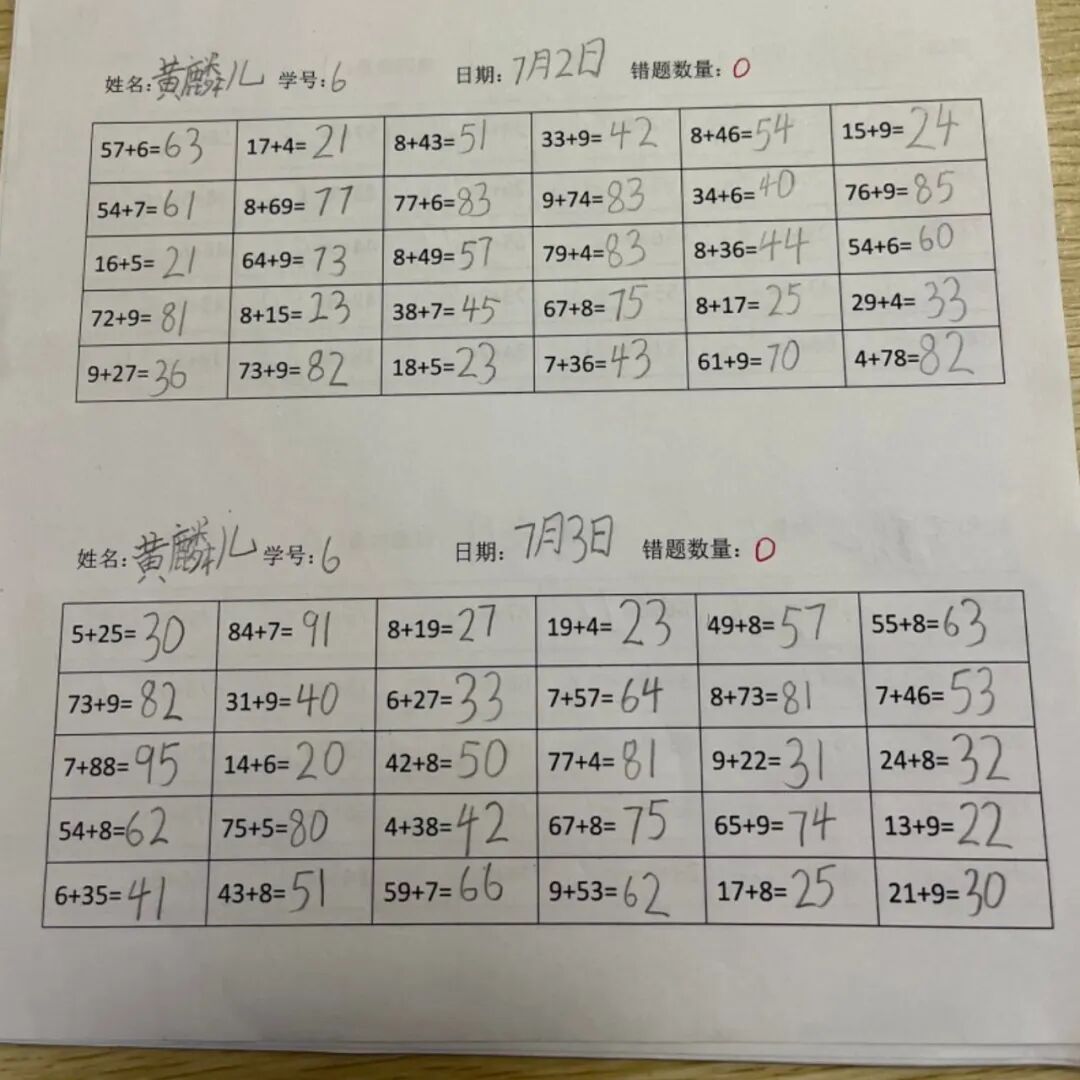 姓名:黄麟儿 学号:6 日期:7月2日 错题数量:0
57+6=63 17+4=21 8+43=51 33+9=42 8+46=54 15+9=24
54+7=61 8+69=77 77+6=83 9+74=83 34+6=40 76+9=85
16+5=21 64+9=73 8+49=57 79+4=83 8+36=44 54+6=60
72+9=81 8+15=23 38+7=45 67+8=75 8+17=25 29+4=33
9+27=36 73+9=82 18+5=23 7+36=43 61+9=70 4+78=82
姓名:黄麟儿 学号:6 日期:7月3日 错题数量:0
5+25=30 84+7=91 8+19=27 19+4=23 49+8=57 55+8=63
73+9=82 31+9=40 6+27=33 7+57=64 8+73=81 7+46=53
7+88=95 14+6=20 42+8=50 77+4=81 9+22=31 24+8=32
54+8=62 75+5=80 4+38=42 67+8=75 65+9=74 13+9=22
6+35=41 43+8=51 59+7=66 9+53=62 17+8=25 21+9=30